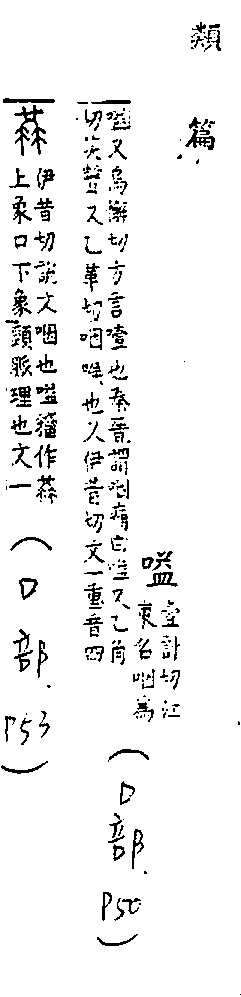 類篇
嗌 壹計切江
東名咽為
嗌又烏懈切方言噎也秦晉謂咽痛曰嗌又乙角
切笑聲又乙革切咽喉也又伊昔切文一重音四
(口部.P50)
伊昔切說文咽也嗌籀作
上象口下象頸脈理也文一
(口部.P53)